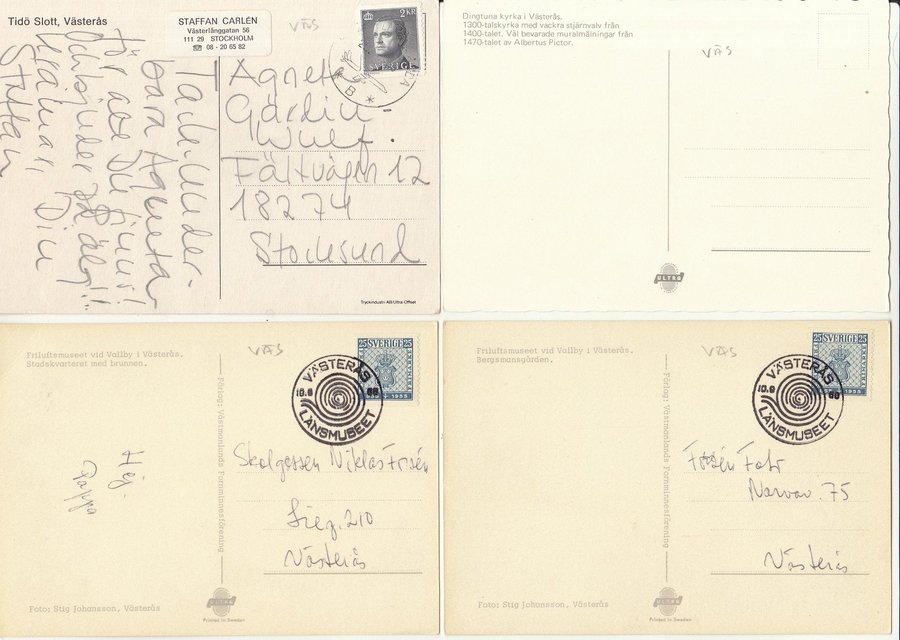 Tidö Slott, Västerås
STAFFAN CARLÉN
Västerlånggatan 56
111 29 STOCKHOLM
☎ 08 - 20 65 82
VÄS
2 KR
SVERIGE
B
Tack-Under-
bara Agneta
för att Du finns!
Din
Staffan
Agneta
Gardin-
Wulf.
Fältvägen 12
18274
Stocksund
Tryckindustri AB/Ultra Offset
Dingtuna kyrka i Västerås.
1300-talskyrka med vackra stjärnvalv från
1400-talet. Väl bevarade muralmålningar från
1470-talet av Albertus Pictor.
VÄS
ULTRA
Friluftsmuseet vid Vallby i Västerås.
Stadskvarteret med brunnen.
VÄS
25 SVERIGE 25
1855 1955
VÄSTERÅS
LÄNSMUSEET
Hej.
Pappa
Förlag: Västmanlands Fornminnesförening
Skolgossen Niklas Frisén
Sieg. 210
Västerås
Foto: Stig Johansson, Västerås
ULTRA
Printed in Sweden
Friluftsmuseet vid Vallby i Västerås.
Bergsmansgården.
VÄS
SVERIGE 25
1955
VÄSTERÅS
LÄNSMUSEET
Förlag: Västmanlands Fornminnesförening
Foto
Narvav. 75
Västerås
Foto: Stig Johansson, Västerås
ULTRA
Printed in Sweden